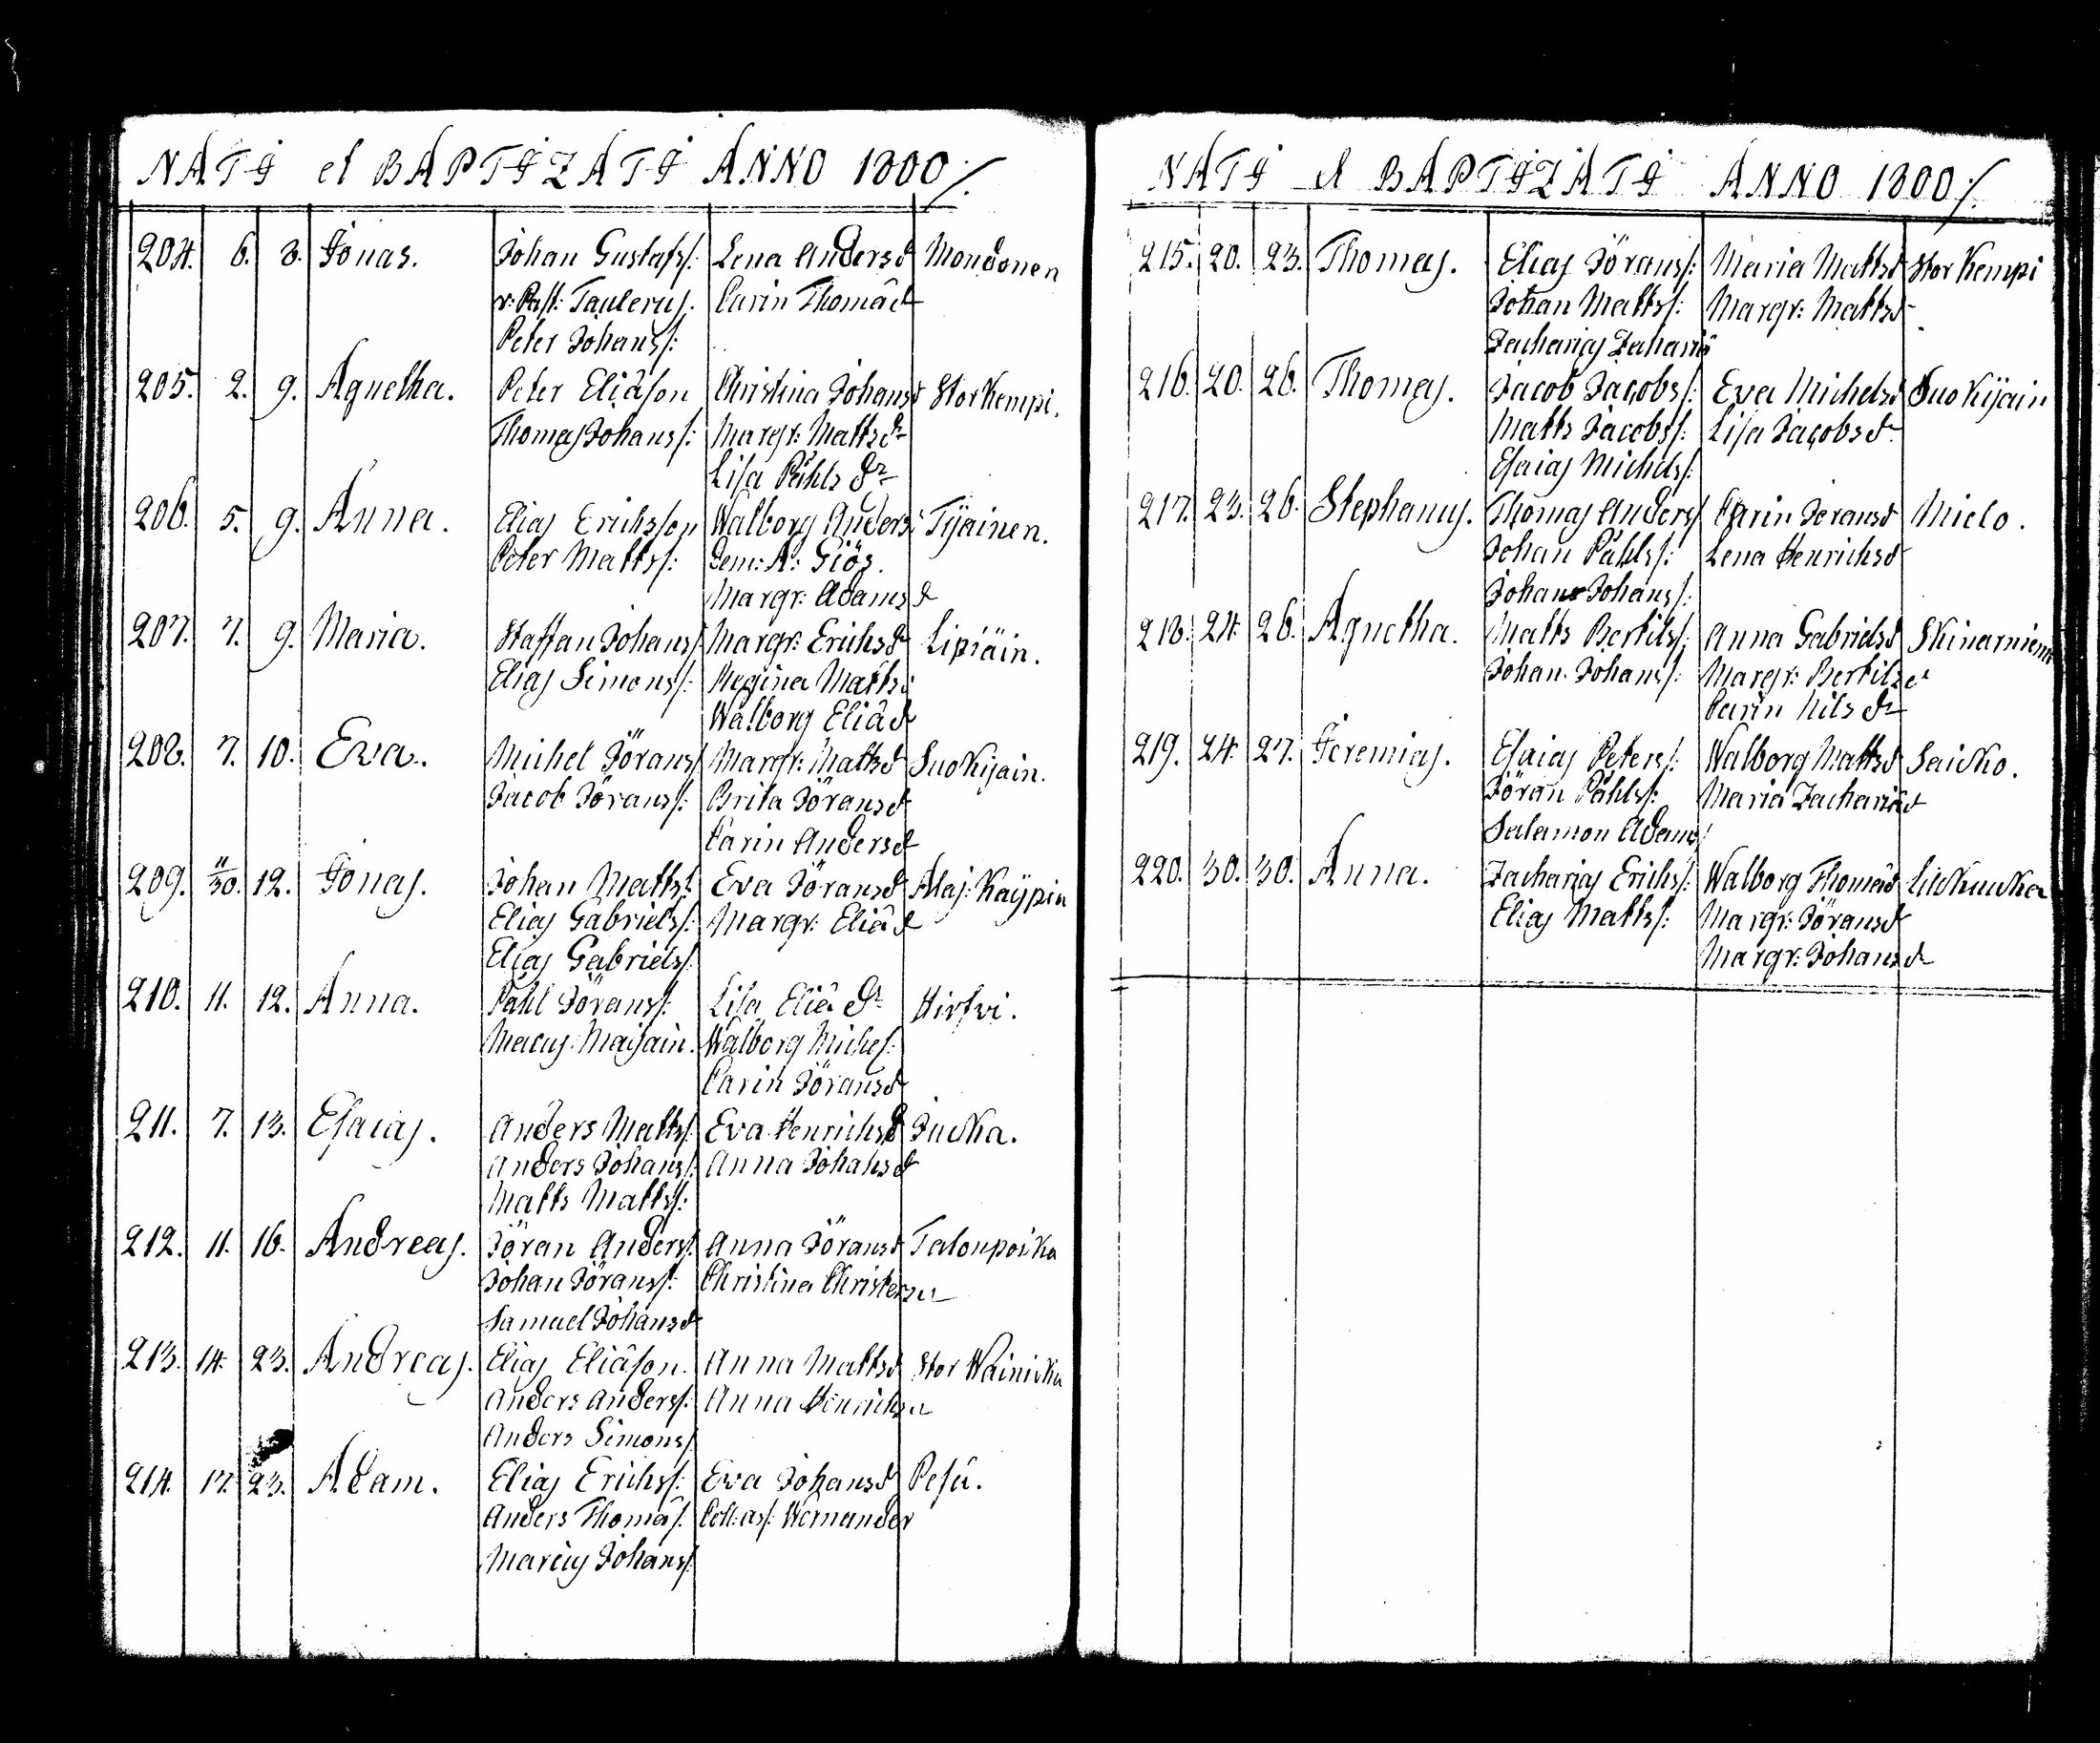 NATI et BAPTIZATI ANNO 1800 ⁒
204. 6. 8. Jonas. Johan Gustafss: Lena Andersd Mondonen
v: Past: Taulerus. Carin Thomæd
Peter Johanss:
205. 2. 9. Agnetha. Peter Eliæson Christina Johansd Stor Kempi.
Thomas Johanss: Margr: Mattsdr
Lisa Påhlsdr
206. 5. 9. Anna. Elias Erichsson Walborg Anders Tyainen.
Peter Mattss: Dem: A: Giös.
Margr: Adamsd
207. 7. 9. Maria. Staffan Johanss: Margr: Erichsd Lipiäin.
Elias Simonss: Regina Matts:
Walborg Eliæd
208. 7. 10. Eva. Michel Jöranss Margr: Mattsd Suokijain.
Jacob Jöranss: Brita Jöransd
Carin Andersd
209. 11/30. 12. Jonas. Johan Matts: Eva Jöransd Alaj: Kaÿpin
Elias Gabrielss: Margr: Eliæd
Elias Gabrielss:
210. 11. 12. Anna. Påhl Jöranss: Lisa Eliædr Hirfvi.
Macus Maijain. Walborg Michels:
Carin Jöransd
211. 7. 13. Esaias. Anders Mattss: Eva Henrichsd Jucka.
Anders Johanss: Anna Johansd
Matts Mattss:
212. 11. 16. Andreas. Jöran Anderss: Anna Jöransd Talonpoika
Johan Jöranss: Christina Christersd
Samuel Johansd
213. 14. 23. Andreas. Elias Eliæson. Anna Mattsd Stor Wainicka
Anders Anderss: Anna Henrichsd
Anders Simonss
214. 17. 23. Adam. Elias Erichss: Eva Johansd Pesu.
Anders Thomæs: Coll: ass: Wernander
Marcus Johanss:
NATI et BAPTIZATI ANNO 1800 ⁒
215. 20. 23. Thomas. Elias Jöranss: Maria Mattsd Stor Kempi
Johan Mattss: Margr: Mattsd
Zacharias Zachariæ
216. 20. 26. Thomas. Jacob Jacobss: Eva Michelsd Suokijain
Matts Jacobss: Lisa Jacobsdr
Esaias Michelss:
217. 23. 26. Stephanus. Thomas Anderss Carin Joransd Mielo.
Johan Påhlss: Lena Henrichsd
Johan Johanss:
218. 24. 26. Agnetha. Matts Bertilss: Anna Gabrielsd Skinarniem
Johan Johanss: Margr: Bertilsd
Carin Nilsdr
219. 24. 27. Jeremias. Esaias Peterss: Walborg Mattsd Saicko.
Jöran Påhlss: Maria Zachariæd
Salamon Adams
220. 30. 30. Anna. Zacharias Erichss: Walborg Thomæd Lill Kucka
Elias Mattss: Margr: Jöransd
Margr: Johansd